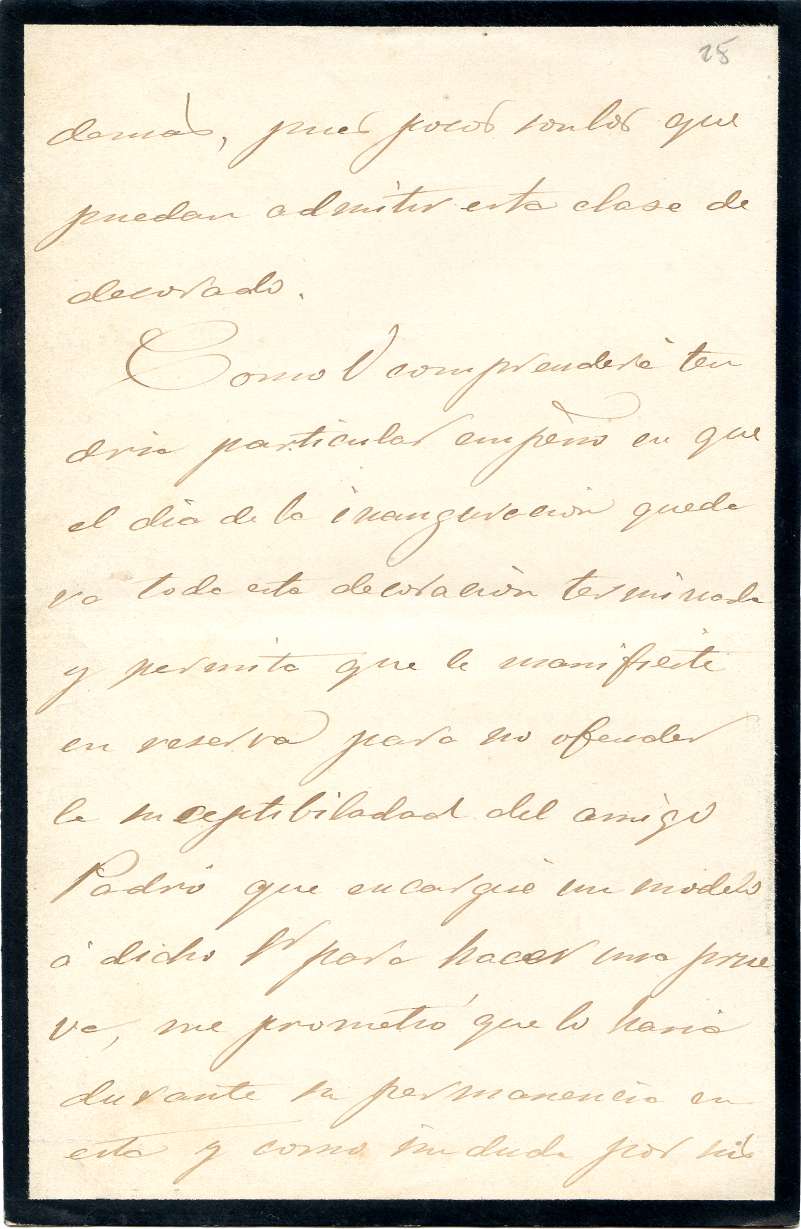 25
demás, pues pocos son los que
puedan admitir esta clase de
decorado.
Como V comprenderá ten
dria particular empeño en que
el dia de la inauguración queda
ra toda esta decoración terminada
y permita que le manifieste
en reserva para no ofender
la suceptibiladad del amigo
Padró que encargué un modelo
á dicho Sr para hacer una prue
va, me prometió que lo haria
durante su permanencia en
esta y como sin duda por sus